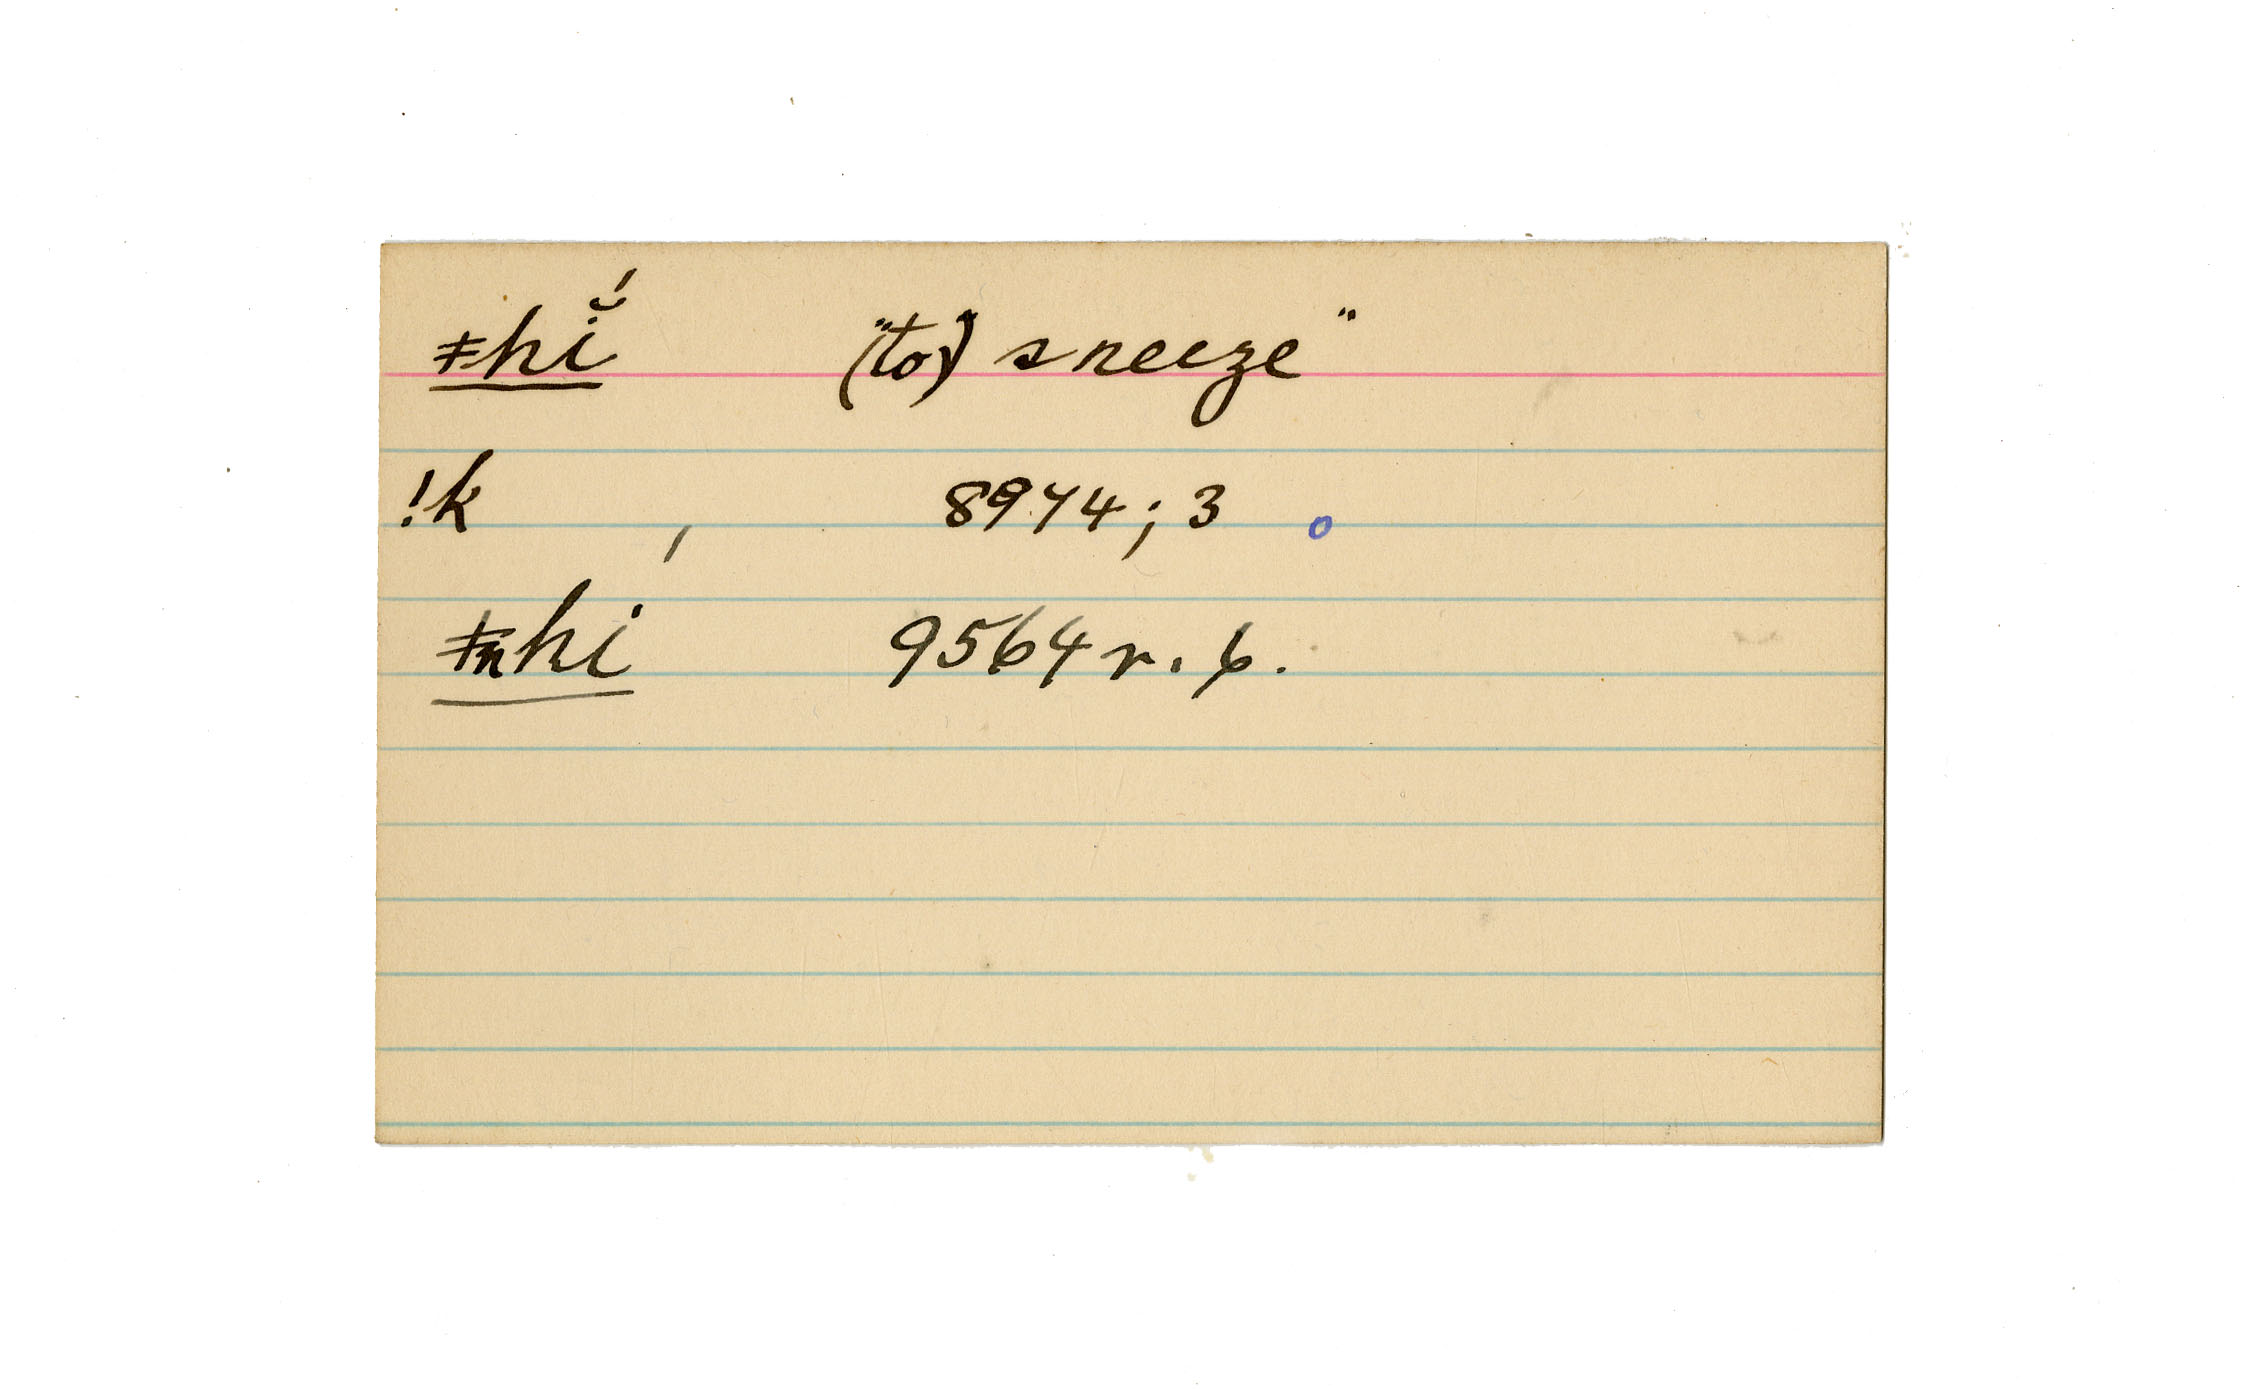 ǂhĭ́ "(to) sneeze"
!k 8974; 3
ǂnhí 9564 r. b.